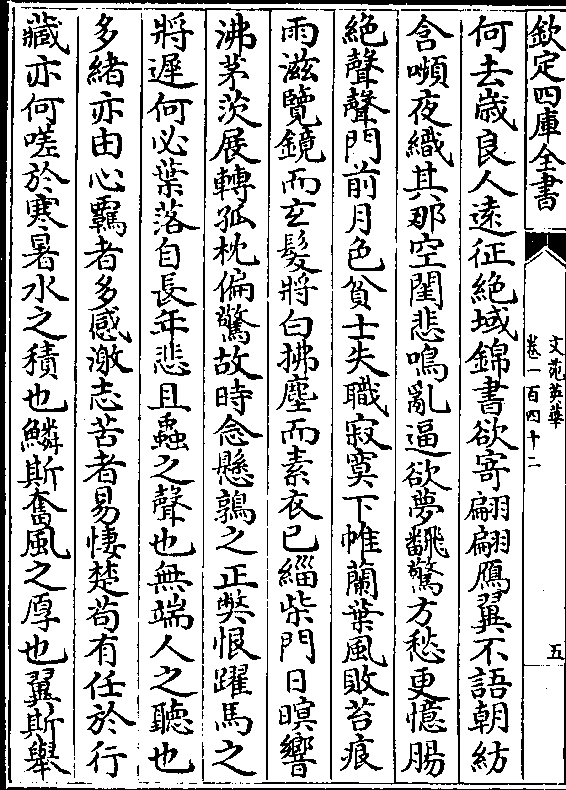 欽定四庫全書
文苑英華
卷一百四十二
五
何去歳良人遠征絶域錦書欲寄翩翩鴈翼不語朝紡
含嚬夜織其那空閨悲鳴亂逼欲夢飜驚方愁更憶腸
絶聲聲門前月色貧士失職寂寞下帷蘭葉風敗苔痕
雨滋覽鏡而玄髮將白拂塵而素衣已緇柴門日暝響
沸茅茨展轉孤枕偏驚故時念懸鶉之正弊恨躍馬之
將遲何必葉落自長年悲且蟲之聲也無端人之聽也
多緒亦由心羈者多感激志苦者易悽楚茍有任於行
藏亦何嗟於寒暑水之積也鱗斯奮風之厚也翼斯舉